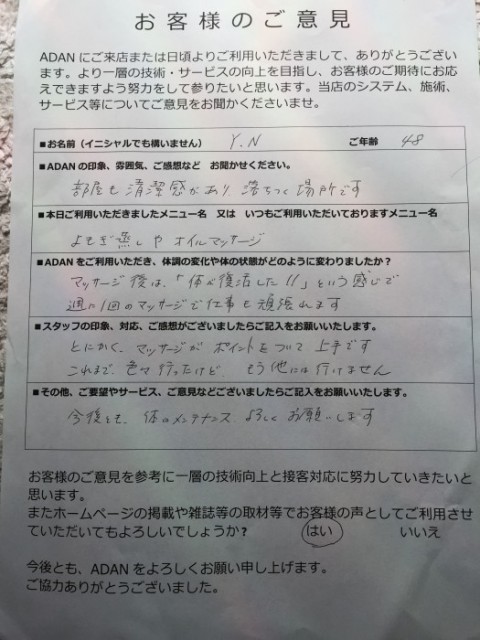 お客様のご意見
ADANにご来店または日頃よりご利用いただきまして、ありがとうござい
ます。より一層の技術・サービスの向上を目指し、お客様のご期待にお応
えできますよう努力をして参りたいと思います。当店のシステム、施術、
サービス等についてご意見をお聞かくださいませ。
■お名前(イニシャルでも構いません) Y.N ご年齢 48
■ADANの印象、雰囲気、ご感想など お聞かせください。
部屋も清潔感があり 落ちつく場所です
■本日ご利用いただきましたメニュー名 又は いつもご利用いただいておりますメニュー名
よもぎ蒸しや オイルマッサージ
■ADANをご利用いただき、体調の変化や体の状態がどのように変わりましたか?
マッサージ後は、「体が復活した!!」という感じで
週に1回のマッサージで仕事も頑張れます
■スタッフの印象、対応、ご感想がございましたらご記入をお願いいたします。
とにかく、マッサージが ポイントをついて 上手です
これまで、色々行ったけど、もう他には行けません
■その他、ご要望やサービス、ご意見などございましたらご記入をお願いいたします。
今後とも、体のメンテナンス よろしくお願いします
お客様のご意見を参考に一層の技術向上と接客対応に努力していきたいと
思います。
またホームページの掲載や雑誌等の取材等でお客様の声としてご利用させ
ていただいてもよろしいでしょうか? はい いいえ
今後とも、ADANをよろしくお願い申し上げます。
ご協力ありがとうございました。